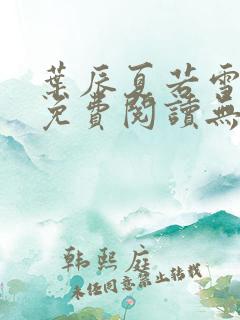 葉辰夏若雪
免費閱讀無
韩熙庭
未经同意禁止转载